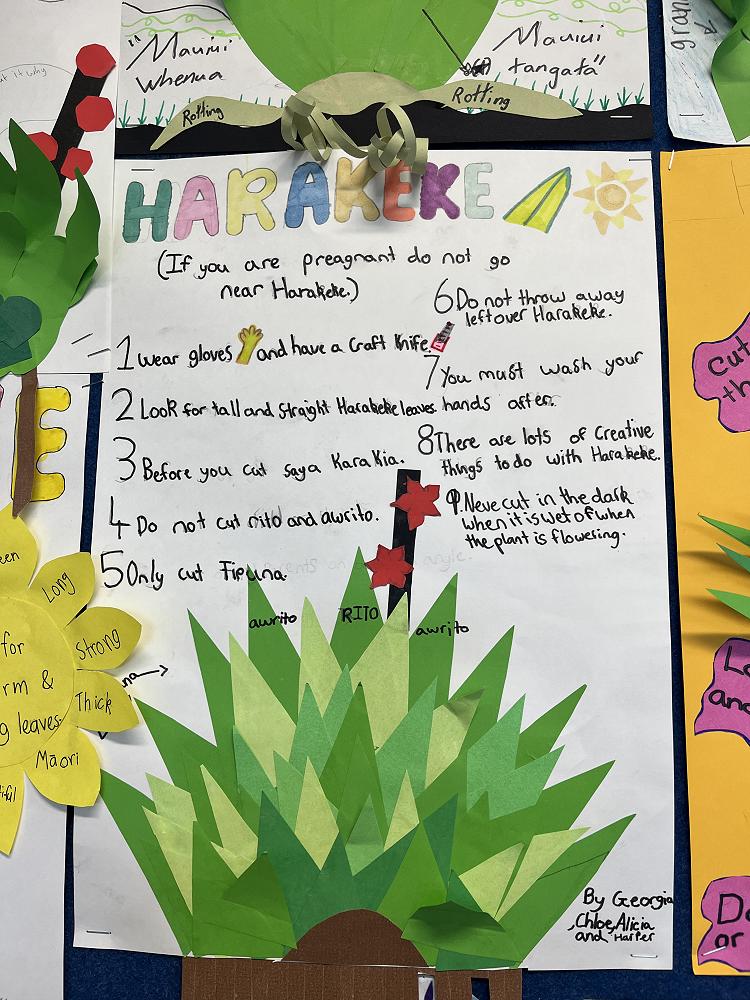 "Mauiui
whenua
Mauiui
tangata"
Rotting
Rotting
HARAKEKE
(If you are preagnant do not go
near Harakeke.)
1 wear gloves and have a Craft Knife.
2 Look for tall and straight Harakeke leaves
3 Before you cut say a Karakia.
4 Do not cut rito and awrito.
5 Only cut Tipuna.
6 Do not throw away
leftover Harakeke.
7 You must wash your
hands after.
8 There are lots of Creative
things to do with Harakeke.
9. Neve cut in the dark
when it is wet of when
the plant is flowering.
awrito
RITO
awrito
By Georgia
,Chloe,Alicia
and Harper
E
Long
Strong
Thick
Māori
for
rm &
g leaves
een
cut
th
La
and
Do
or